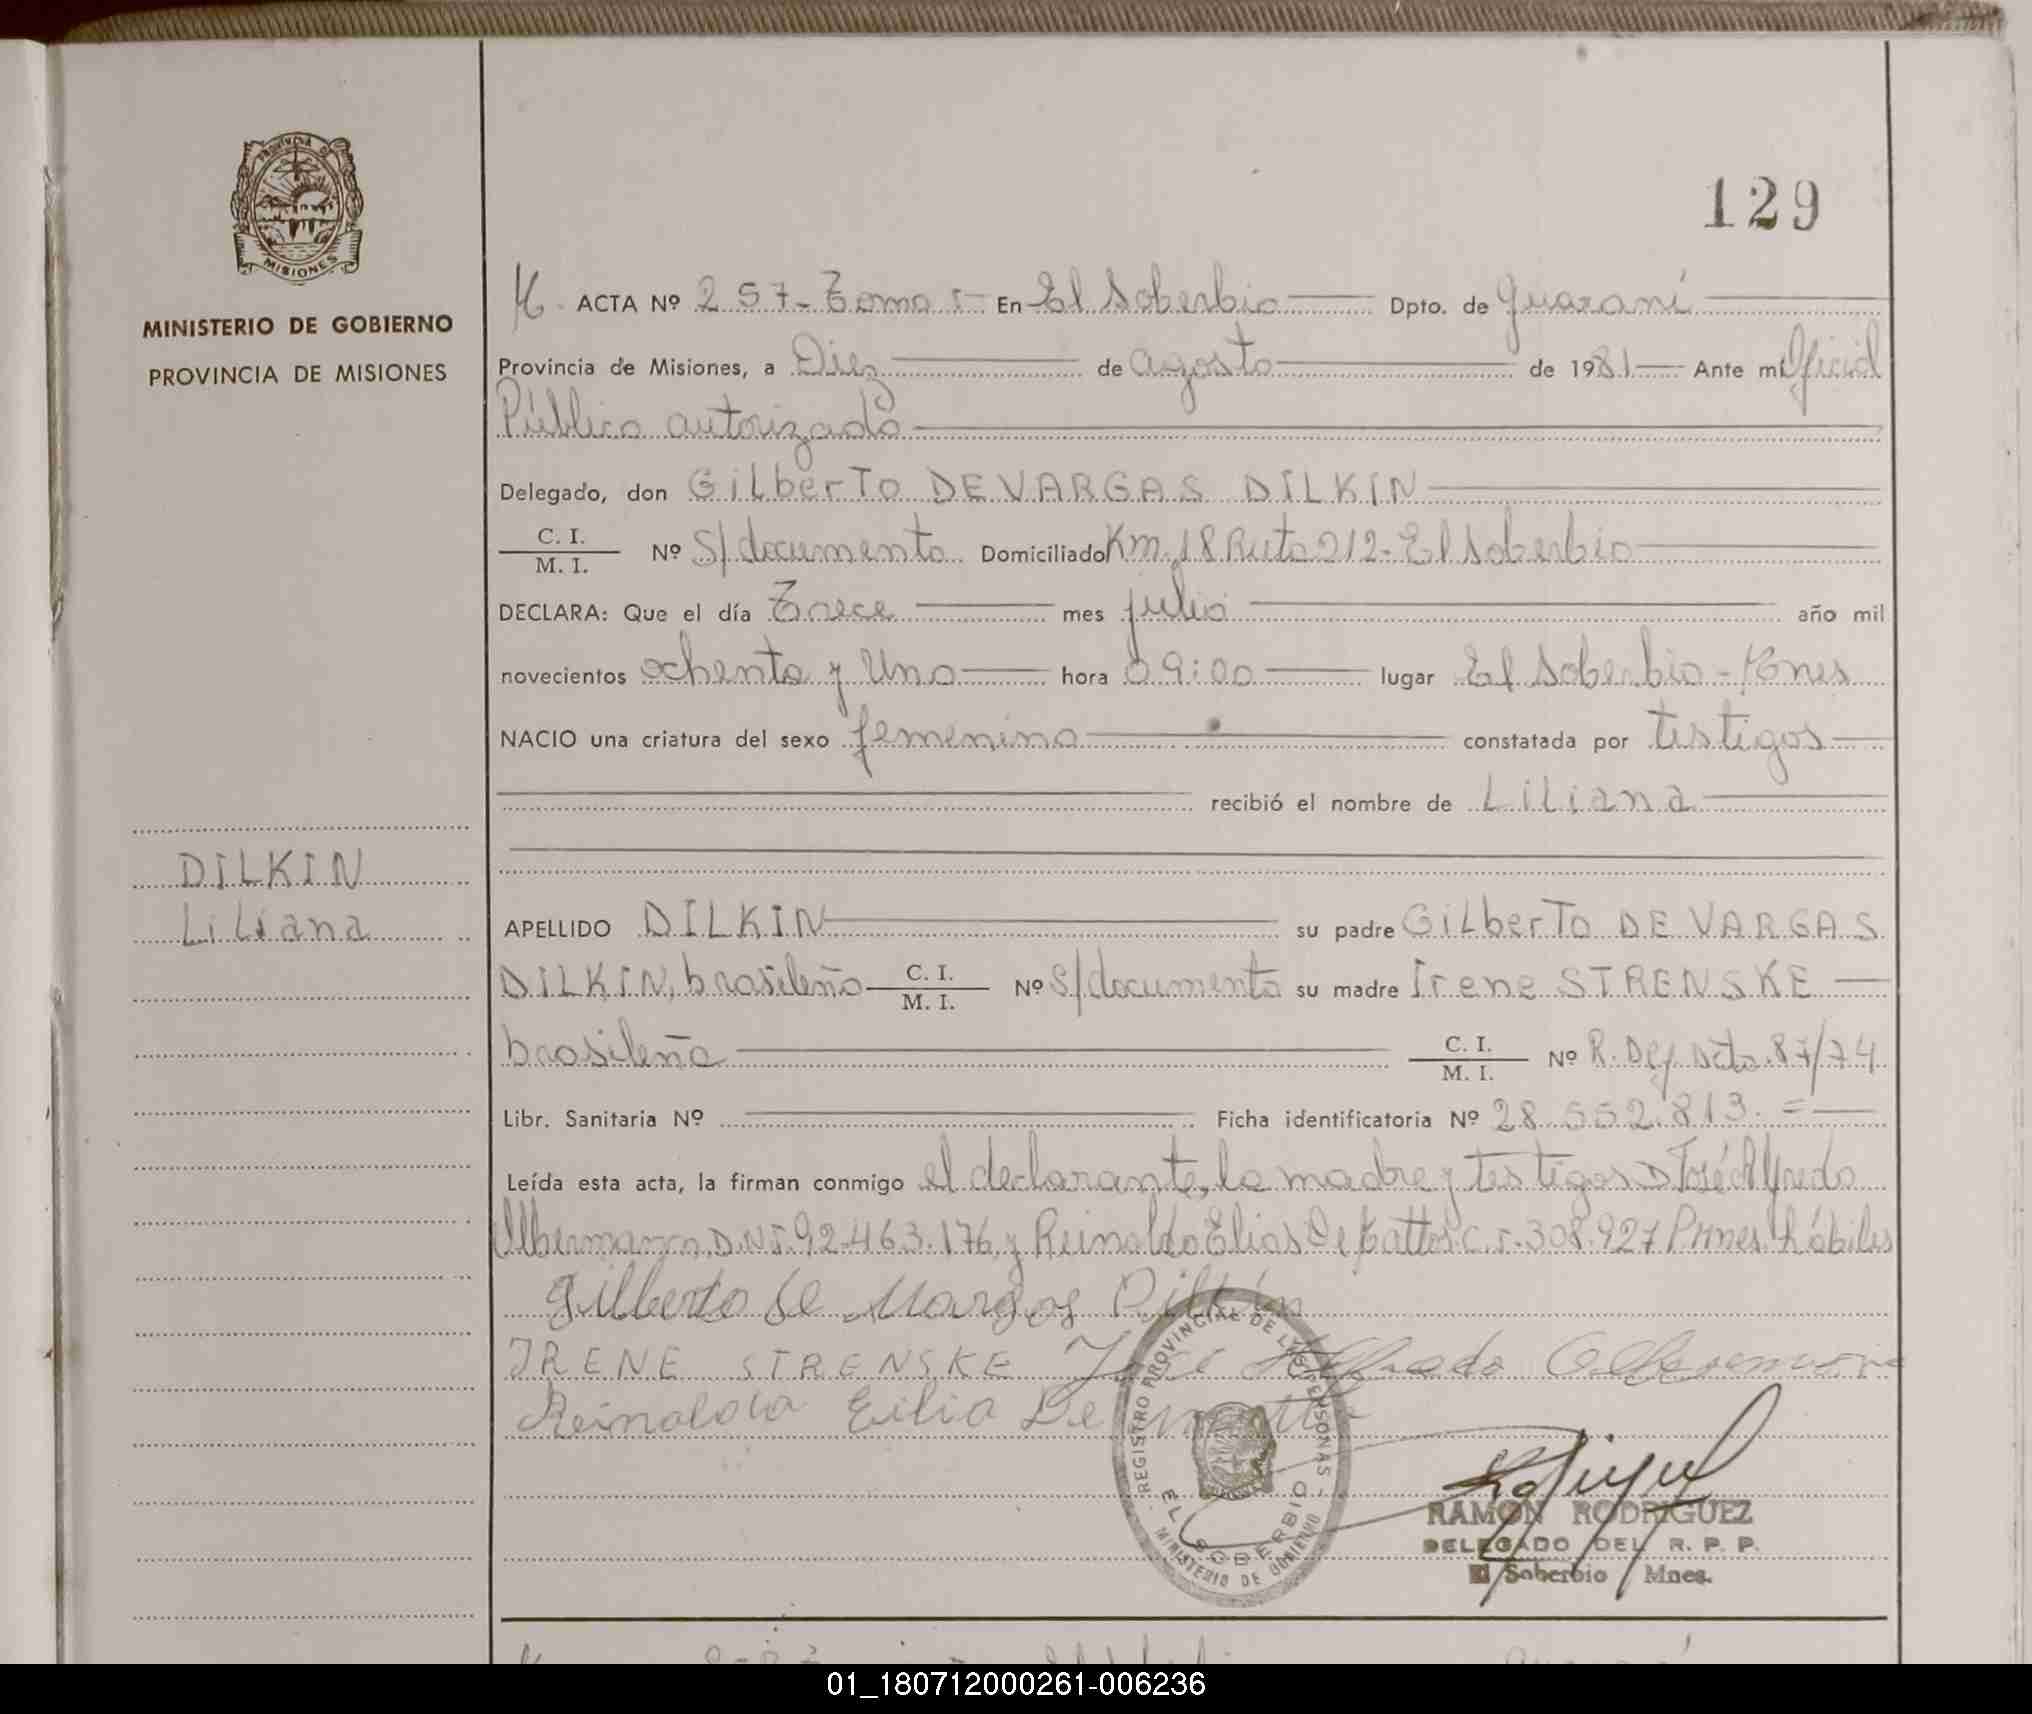 129
PROVINCIA DE
MISIONES
MINISTERIO DE GOBIERNO
PROVINCIA DE MISIONES
DILKIN
Liliana
ACTA Nº 257 - Tomo I - En El Soberbio Dpto. de Guaraní
Provincia de Misiones, a Diez de agosto de 1981 Ante mí Oficial
Público autorizado
Delegado, don Gilberto DE VARGAS DILKIN
C. I. / M. I. Nº S/documento Domiciliado Km. 18 Ruta 212 - El Soberbio
DECLARA: Que el día Trece mes julio año mil
novecientos ochenta y Uno hora 09:00 lugar El Soberbio - Mnes
NACIO una criatura del sexo femenino constatada por testigos
recibió el nombre de Liliana
APELLIDO DILKIN su padre Gilberto DE VARGAS
DILKIN, brasileño C. I. / M. I. Nº S/documento su madre Irene STRENSKE
brasileña C. I. / M. I. Nº R. Def. Dcto. 87/74
Libr. Sanitaria Nº Ficha identificatoria Nº 28.552.813. =
Leída esta acta, la firman conmigo el declarante, la madre y testigos D José Alfredo
D.N.I. 92.463.176, y Reinaldo Elias De C.I. 308.927 hábiles
Gilberto de Vargas Dilkin
IRENE STRENSKE José Alfredo
Reinaldo Eilia De
REGISTRO PROVINCIAL DE LAS PERSONAS
EL SOBERBIO
MINISTERIO DE GOBIERNO
RAMON RODRIGUEZ
DELEGADO DEL R. P. P.
El Soberbio Mnes.
01_180712000261-006236